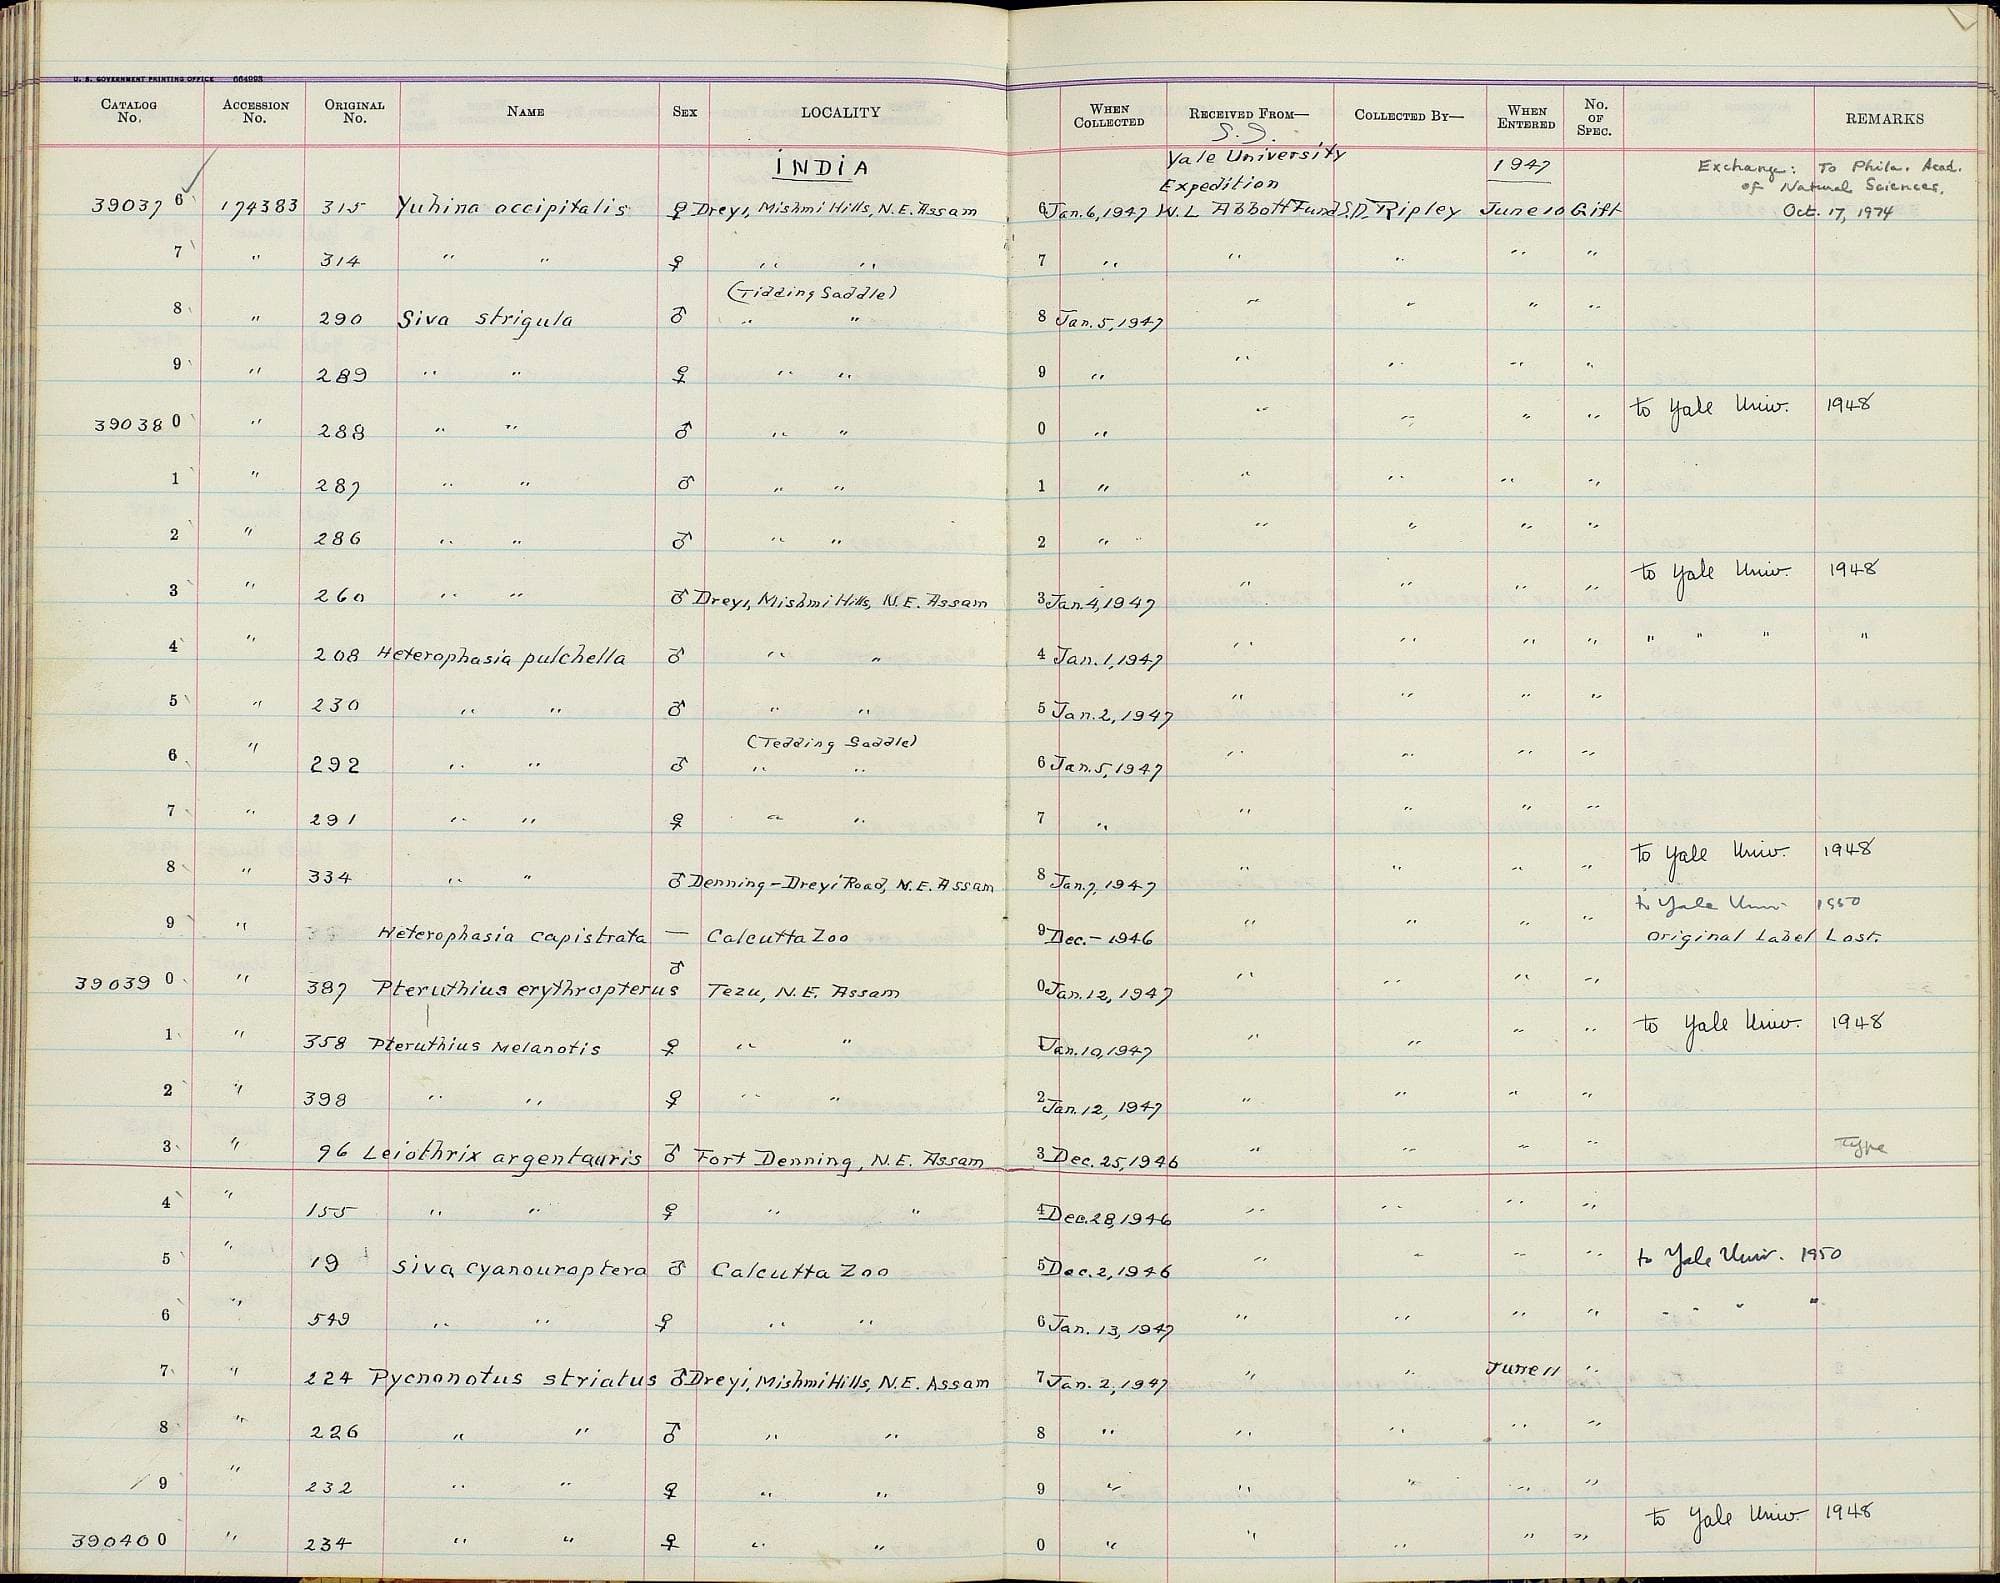 U. S. GOVERNMENT PRINTING OFFICE 664993
CATALOG No. ACCESSION No. ORIGINAL No. NAME SEX LOCALITY WHEN COLLECTED RECEIVED FROM— COLLECTED BY— WHEN ENTERED No. OF SPEC. REMARKS
S. I.
INDIA Yale University 1947 Exchange: To Phila. Acad.
Expedition of Natural Sciences,
39037 6 174383 315 Yuhina occipitalis ♀ Dreyi, Mishmi Hills, N.E. Assam 6 Jan. 6, 1947 W. L. Abbott Fund S.D. Ripley June 10 Gift Oct. 17, 1974
7 " 314 " " ♀ " " 7 " " " " "
(Tidding Saddle)
8 " 290 Siva strigula ♂ " " 8 Jan. 5, 1947 " " " "
9 " 289 " " ♀ " " 9 " " " " "
39038 0 " 288 " " ♂ " " 0 " " " " " to Yale Univ. 1948
1 " 287 " " ♂ " " 1 " " " " "
2 " 286 " " ♂ " " 2 " " " " "
3 " 260 " " ♂ Dreyi, Mishmi Hills, N.E. Assam 3 Jan. 4, 1947 " " " " to Yale Univ. 1948
4 " 208 Heterophasia pulchella ♂ " " 4 Jan. 1, 1947 " " " " " " " "
5 " 230 " " ♂ " " 5 Jan. 2, 1947 " " " "
(Tedding Saddle)
6 " 292 " " ♂ " " 6 Jan. 5, 1947 " " " "
7 " 291 " " ♀ " " 7 " " " " "
8 " 334 " " ♂ Denning-Dreyi Road, N.E. Assam 8 Jan. 7, 1947 " " " " to Yale Univ. 1948
to Yale Univ. 1950
9 " Heterophasia capistrata — Calcutta Zoo 9 Dec. - 1946 " " " " Original Label Lost.
39039 0 " 387 Pteruthius erythropterus ♂ Tezu, N.E. Assam 0 Jan. 12, 1947 " " " "
1 " 358 Pteruthius Melanotis ♀ " " 1 Jan. 10, 1947 " " " " to Yale Univ. 1948
2 " 398 " " ♀ " " 2 Jan. 12, 1947 " " " "
3 " 96 Leiothrix argentauris ♂ Fort Denning, N.E. Assam 3 Dec. 25, 1946 " " " " Type
4 " 155 " " ♀ " " 4 Dec. 28, 1946 " " " "
5 " 19 Siva cyanouroptera ♂ Calcutta Zoo 5 Dec. 2, 1946 " " " " to Yale Univ. 1950
6 " 549 " " ♀ " " 6 Jan. 13, 1947 " " " " " " " "
7 " 224 Pycnonotus striatus ♂ Dreyi, Mishmi Hills, N.E. Assam 7 Jan. 2, 1947 " " June 11 "
8 " 226 " " ♂ " " 8 " " " " "
9 " 232 " " ♀ " " 9 " " " " "
39040 0 " 234 " " ♀ " " 0 " " " " " to Yale Univ. 1948